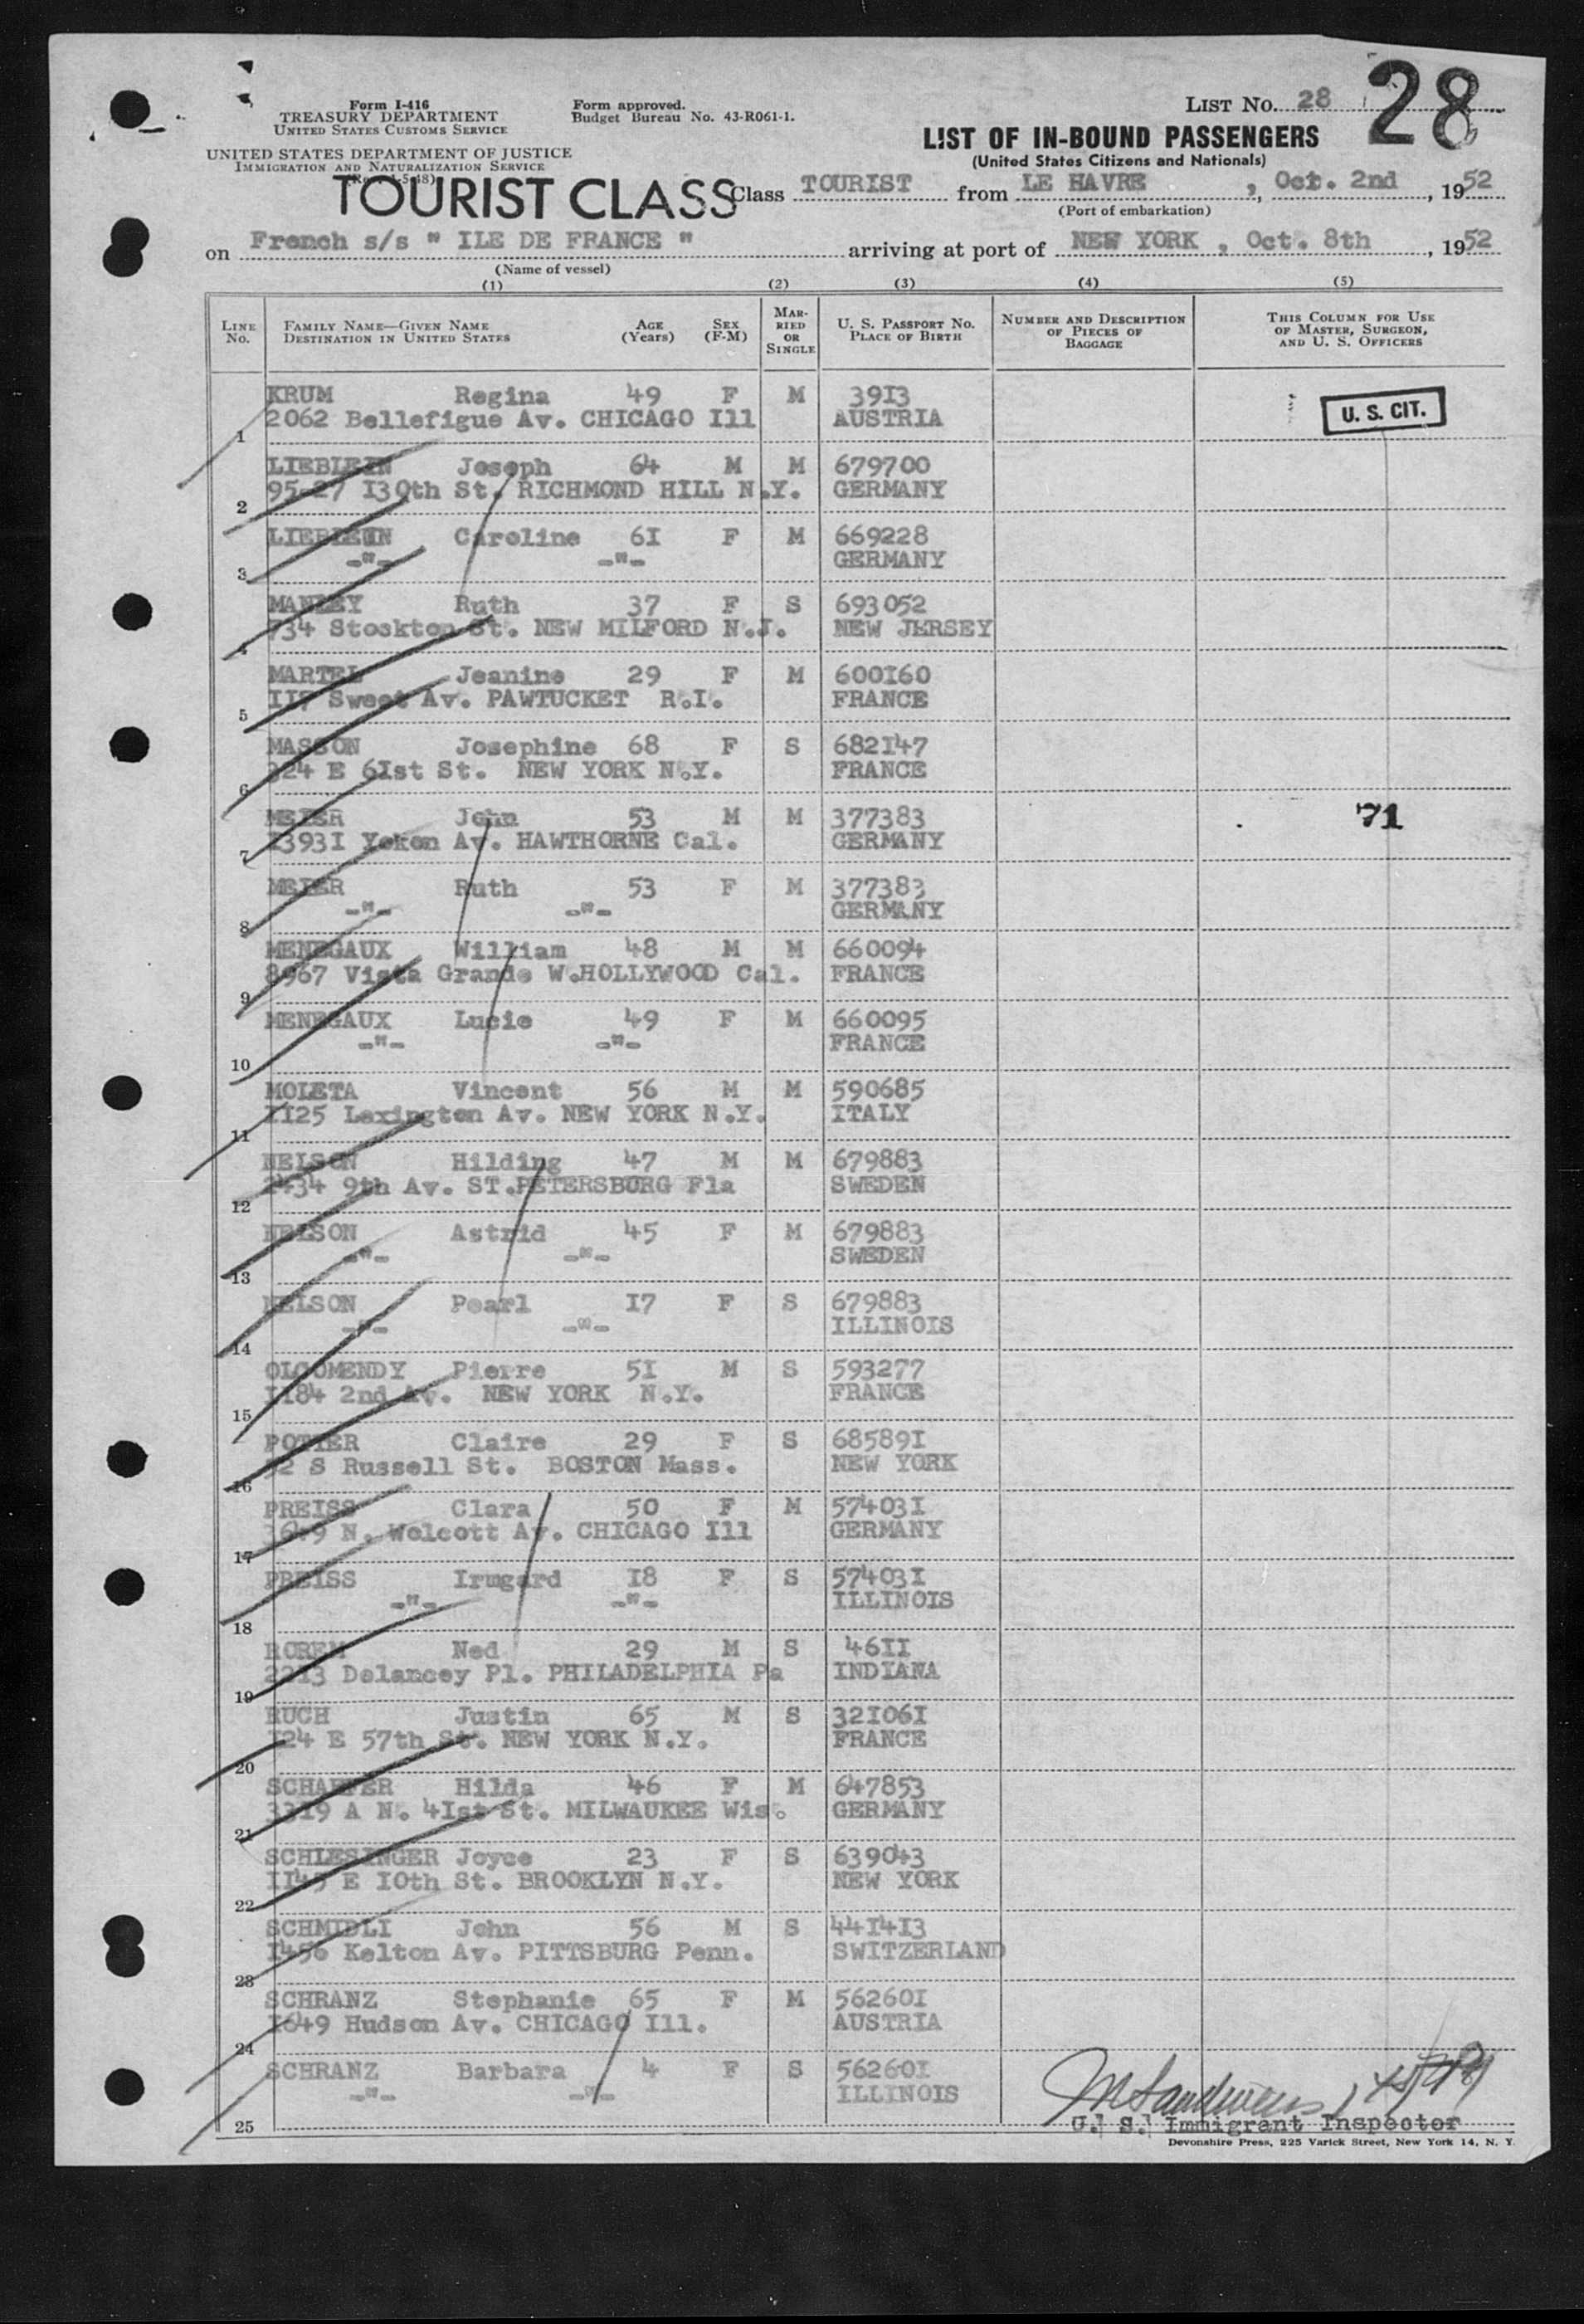 Form I-416
TREASURY DEPARTMENT
UNITED STATES CUSTOMS SERVICE
UNITED STATES DEPARTMENT OF JUSTICE
IMMIGRATION AND NATURALIZATION SERVICE
Form approved.
Budget Bureau No. 43-R061-1.
LIST No. 28
28
LIST OF IN-BOUND PASSENGERS
(United States Citizens and Nationals)
TOURIST CLASS
Class TOURIST from LE HAVRE, Oct. 2nd, 1952
(Port of embarkation)
on French s/s " ILE DE FRANCE " arriving at port of NEW YORK, Oct. 8th, 1952
(Name of vessel)
(1) (2) (3) (4) (5)
LINE No.
FAMILY NAME—GIVEN NAME
DESTINATION IN UNITED STATES
AGE (Years)
SEX (F-M)
MARRIED OR SINGLE
U. S. PASSPORT No.
PLACE OF BIRTH
NUMBER AND DESCRIPTION OF PIECES OF BAGGAGE
THIS COLUMN FOR USE OF MASTER, SURGEON, AND U. S. OFFICERS
KRUM Regina 49 F M 3913
1 2062 Bellefigue Av. CHICAGO Ill AUSTRIA
U. S. CIT.
LIEBLEIN Joseph 64 M M 679700
2 95-27 130th St. RICHMOND HILL N.Y. GERMANY
LIEBLEIN Caroline 61 F M 669228
3 -"- -"- GERMANY
MANLEY Ruth 37 F S 693052
4 734 Stockton St. NEW MILFORD N.J. NEW JERSEY
MARTEL Jeanine 29 F M 600160
5 117 Sweet Av. PAWTUCKET R.I. FRANCE
MASSON Josephine 68 F S 682147
6 324 E 61st St. NEW YORK N.Y. FRANCE
MEIER John 53 M M 377383
71
7 13931 Yokon Av. HAWTHORNE Cal. GERMANY
MEIER Ruth 53 F M 377383
8 -"- -"- GERMANY
MENEGAUX William 48 M M 660094
9 8967 Vista Grande W.HOLLYWOOD Cal. FRANCE
MENEGAUX Lucie 49 F M 660095
10 -"- -"- FRANCE
MOLETA Vincent 56 M M 590685
11 1125 Lexington Av. NEW YORK N.Y. ITALY
NELSON Hilding 47 M M 679883
12 2434 9th Av. ST.PETERSBURG Fla SWEDEN
NELSON Astrid 45 F M 679883
13 -"- -"- SWEDEN
NELSON Pearl 17 F S 679883
14 -"- -"- ILLINOIS
OLCOMENDY Pierre 51 M S 593277
15 1184 2nd Av. NEW YORK N.Y. FRANCE
POTIER Claire 29 F S 685891
16 S Russell St. BOSTON Mass. NEW YORK
PREISS Clara 50 F M 574031
17 3649 N. Wolcott Av. CHICAGO Ill GERMANY
PREISS Irmgard 18 F S 574031
18 -"- -"- ILLINOIS
ROREM Ned 29 M S 4611
19 2213 Delancey Pl. PHILADELPHIA Pa INDIANA
RUCH Justin 65 M S 321061
20 124 E 57th St. NEW YORK N.Y. FRANCE
SCHAEFER Hilda 46 F M 647853
21 3319 A N. 41st St. MILWAUKEE Wis. GERMANY
SCHLESINGER Joyce 23 F S 639043
22 1145 E 10th St. BROOKLYN N.Y. NEW YORK
SCHMIDLI John 56 M S 441413
23 1456 Kelton Av. PITTSBURG Penn. SWITZERLAND
SCHRANZ Stephanie 65 F M 562601
24 1649 Hudson Av. CHICAGO Ill. AUSTRIA
SCHRANZ Barbara 4 F S 562601
25 -"- -"- ILLINOIS
U. S. Immigrant Inspector
Devonshire Press, 225 Varick Street, New York 14, N. Y.